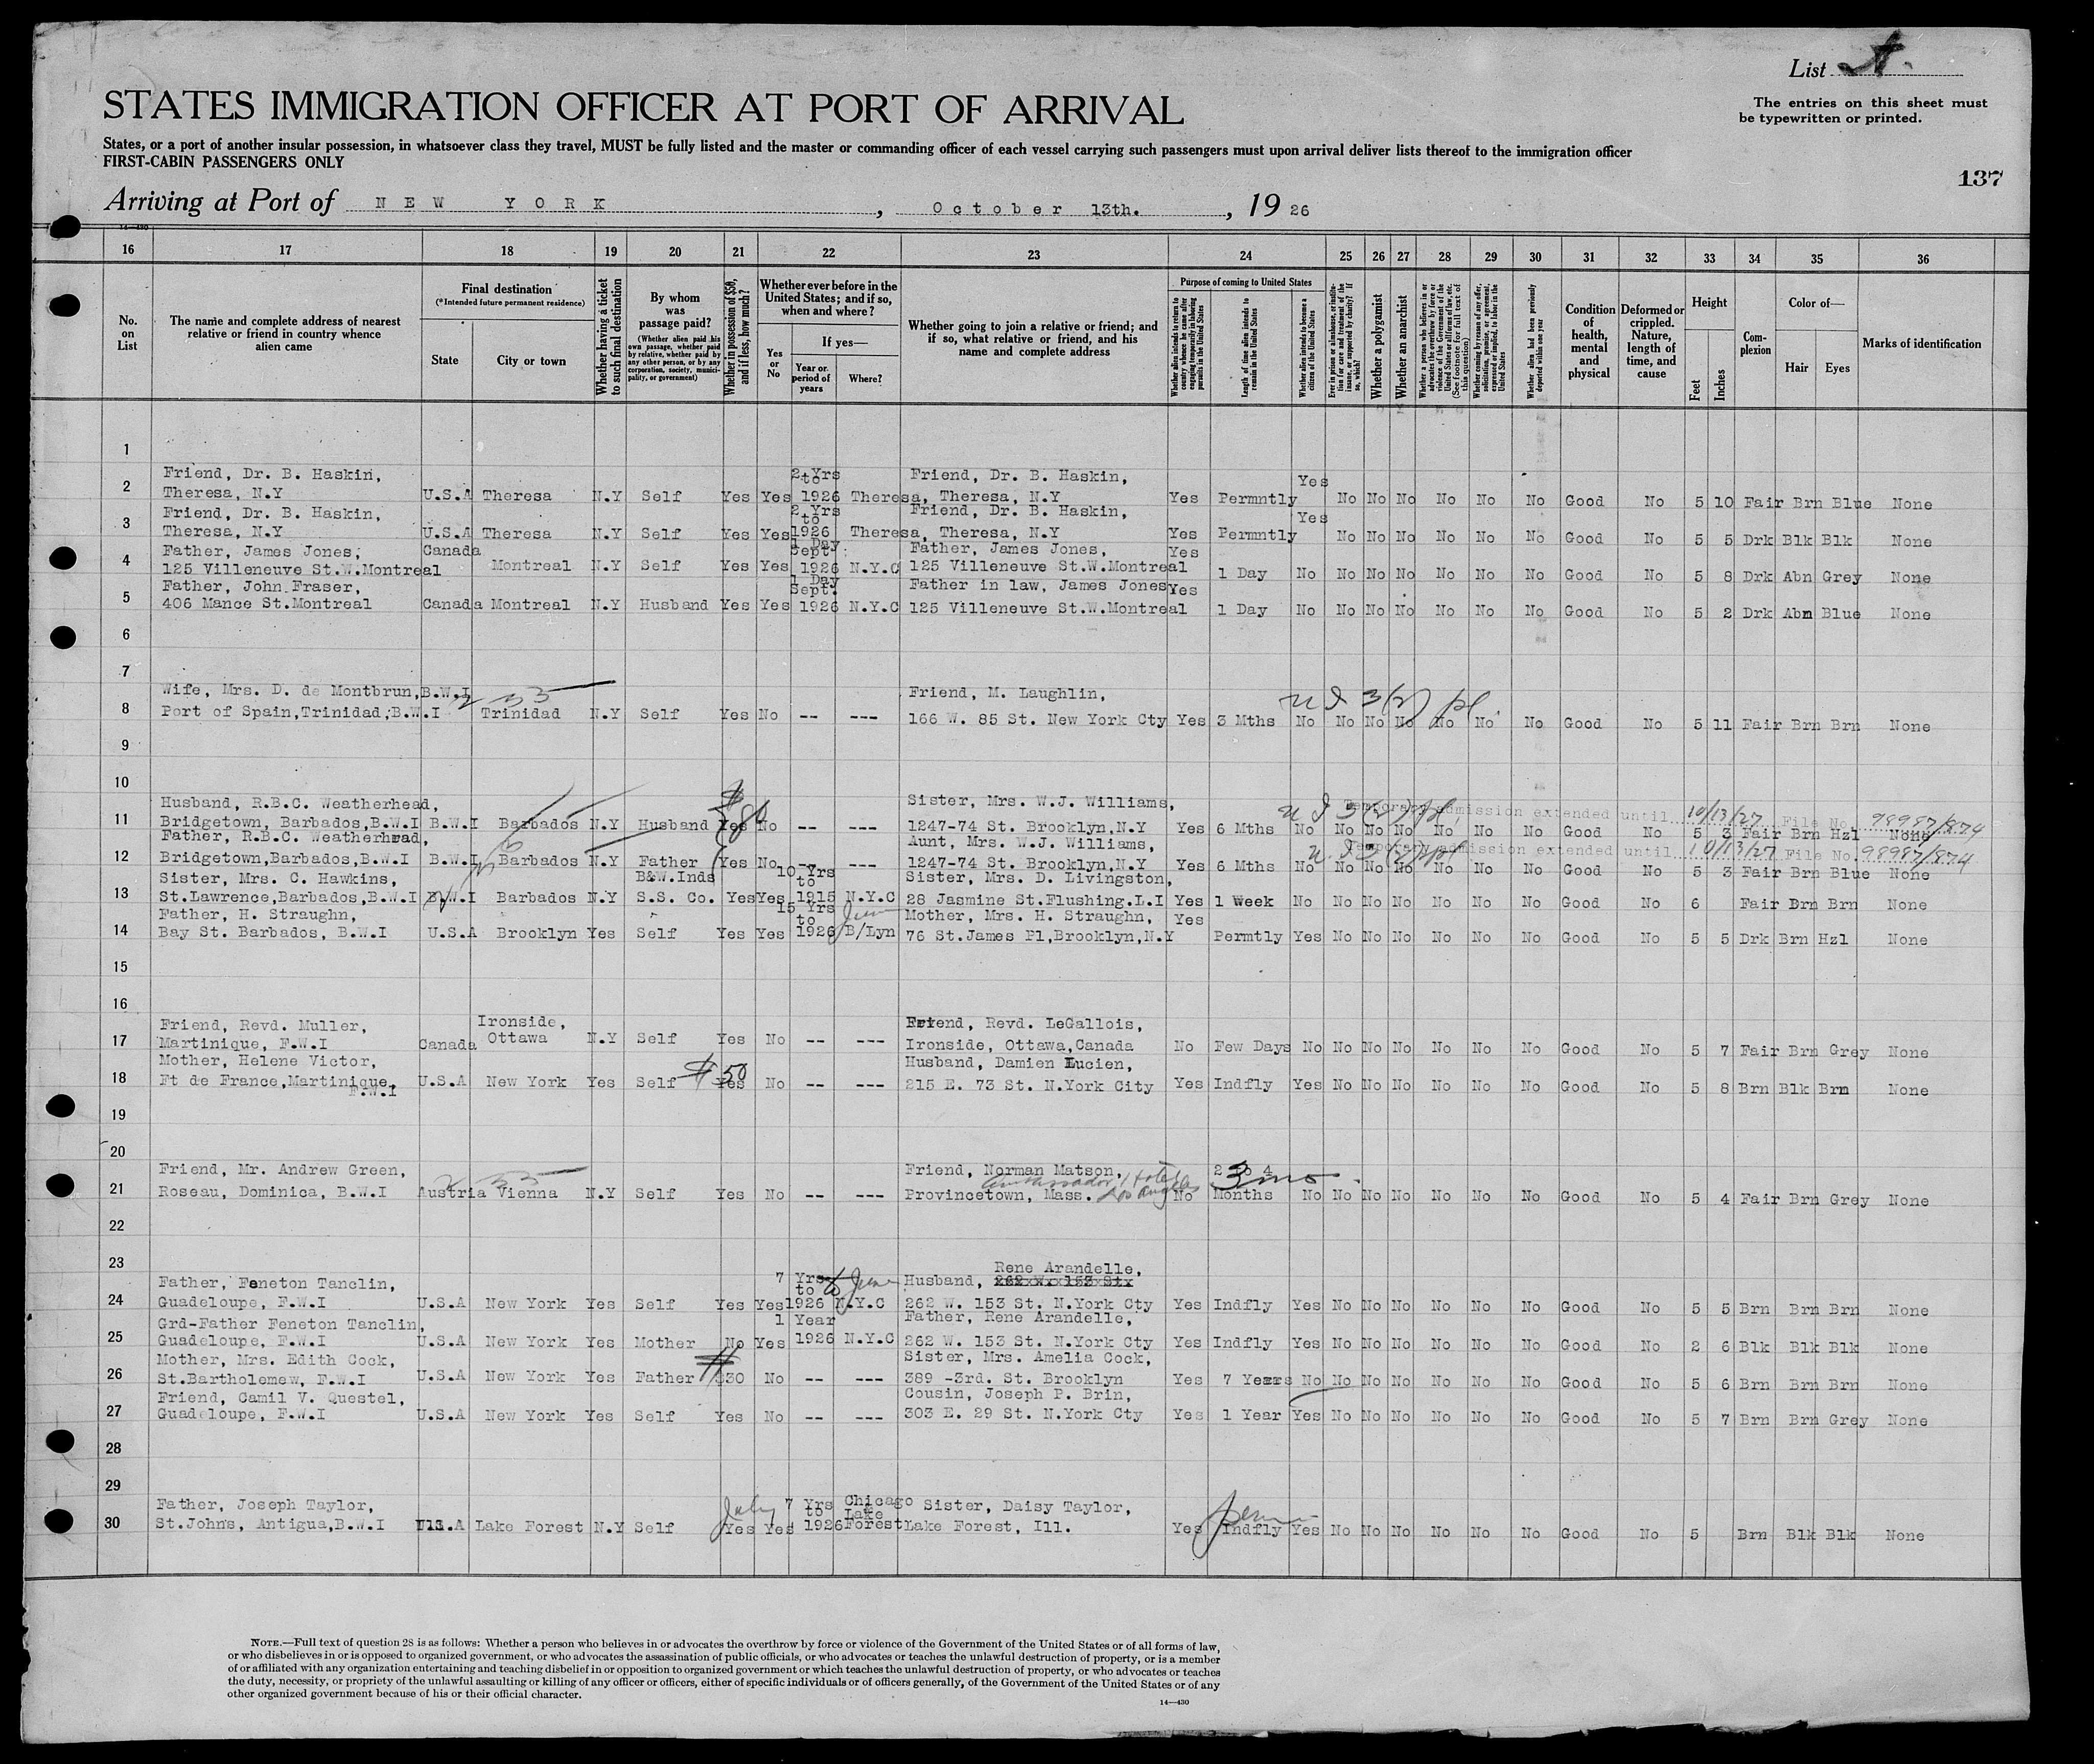 List A.
STATES IMMIGRATION OFFICER AT PORT OF ARRIVAL
The entries on this sheet must
be typewritten or printed.
States, or a port of another insular possession, in whatsoever class they travel, MUST be fully listed and the master or commanding officer of each vessel carrying such passengers must upon arrival deliver lists thereof to the immigration officer
FIRST-CABIN PASSENGERS ONLY
137
Arriving at Port of NEW YORK, October 13th., 19 26
14—430
16 17 18 19 20 21 22 23 24 25 26 27 28 29 30 31 32 33 34 35 36
No. on List
The name and complete address of nearest relative or friend in country whence alien came
Final destination
(*Intended future permanent residence)
State
City or town
Whether having a ticket to such final destination
By whom was passage paid?
(Whether alien paid his own passage, whether paid by relative, whether paid by any other person, or by any corporation, society, municipality, or government)
Whether in possession of $50, and if less, how much?
Whether ever before in the United States; and if so, when and where?
Yes or No
If yes—
Year or period of years
Where?
Whether going to join a relative or friend; and if so, what relative or friend, and his name and complete address
Purpose of coming to United States
Whether alien intends to return to country whence he came after engaging temporarily in laboring pursuits in the United States
Length of time alien intends to remain in the United States
Whether alien intends to become a citizen of the United States
Ever in prison or almshouse, or institution for care and treatment of the insane, or supported by charity? If so, which?
Whether a polygamist
Whether an anarchist
Whether a person who believes in or advocates the overthrow by force or violence of the Government of the United States or all forms of law, etc. (See footnote for full text of this question)
Whether coming by reason of any offer, solicitation, promise, or agreement, expressed or implied, to labor in the United States
Whether alien had been previously deported within one year
Condition of health, mental and physical
Deformed or crippled. Nature, length of time, and cause
Height
Feet
Inches
Complexion
Color of—
Hair
Eyes
Marks of identification
1
2 Friend, Dr. B. Haskin, Theresa, N.Y U.S.A Theresa N.Y Self Yes Yes 2 Yrs to 1926 Theresa Friend, Dr. B. Haskin, Theresa, N.Y Yes Permntly Yes No No No No No No Good No 5 10 Fair Brn Blue None
3 Friend, Dr. B. Haskin, Theresa, N.Y U.S.A Theresa N.Y Self Yes Yes 2 Yrs to 1926 Theresa Friend, Dr. B. Haskin, Theresa, N.Y Yes Permntly Yes No No No No No No Good No 5 5 Drk Blk Blk None
4 Father, James Jones, 125 Villeneuve St.W.Montreal Canada Montreal N.Y Self Yes Yes 1 Day Sept. 1926 N.Y.C Father, James Jones, 125 Villeneuve St.W.Montreal Yes 1 Day No No No No No No No Good No 5 8 Drk Abn Grey None
5 Father, John Fraser, 406 Mance St.Montreal Canada Montreal N.Y Husband Yes Yes 1 Day Sept. 1926 N.Y.C Father in law, James Jones 125 Villeneuve St.W.Montreal Yes 1 Day No No No No No No No Good No 5 2 Drk Abn Blue None
6
7
8 Wife, Mrs. D. de Montbrun, Port of Spain,Trinidad,B.W.I B.W.I Trinidad N.Y Self Yes No -- --- Friend, M. Laughlin, 166 W. 85 St. New York Cty Yes 3 Mths No No No No No No No Good No 5 11 Fair Brn Brn None
9
10
11 Husband, R.B.C. Weatherhead, Bridgetown, Barbados,B.W.I B.W.I Barbados N.Y Husband Yes $80 No -- --- Sister, Mrs. W.J. Williams, 1247-74 St. Brooklyn,N.Y Yes 6 Mths No No No No No No No Good No 5 3 Fair Brn Hzl None
Temporary admission extended until 10/13/27 File No. 98987/874
12 Father, R.B.C. Weatherhead, Bridgetown,Barbados,B.W.I B.W.I Barbados N.Y Father Yes No -- --- Aunt, Mrs. W.J. Williams, 1247-74 St. Brooklyn,N.Y Yes 6 Mths No No No No No No No Good No 5 3 Fair Brn Blue None
Temporary admission extended until 10/13/27 File No. 98987/874
13 Sister, Mrs. C. Hawkins, St.Lawrence,Barbados,B.W.I B.W.I Barbados N.Y B&W.Inds S.S. Co. Yes Yes 10 Yrs to 1915 N.Y.C Sister, Mrs. D. Livingston, 28 Jasmine St.Flushing.L.I Yes 1 Week No No No No No No No Good No 6 Fair Brn Brn None
14 Father, H. Straughn, Bay St. Barbados, B.W.I U.S.A Brooklyn Yes Self Yes Yes 15 Yrs to 1926 June B/Lyn Mother, Mrs. H. Straughn, 76 St.James Pl,Brooklyn,N.Y Yes Permtly Yes No No No No No No Good No 5 5 Drk Brn Hzl None
15
16
17 Friend, Revd. Muller, Martinique, F.W.I Canada Ironside, Ottawa N.Y Self Yes No -- --- Friend, Revd. LeGallois, Ironside, Ottawa,Canada No Few Days No No No No No No No Good No 5 7 Fair Brn Grey None
18 Mother, Helene Victor, Ft de France,Martinique, F.W.I U.S.A New York Yes Self $50 Yes No -- --- Husband, Damien Lucien, 215 E. 73 St. N.York City Yes Indfly Yes No No No No No No Good No 5 8 Brn Blk Brn None
19
20
21 Friend, Mr. Andrew Green, Roseau, Dominica, B.W.I Austria Vienna N.Y Self Yes No -- --- Friend, Norman Matson, Provincetown, Mass. Ambassador Hotel Los Angeles No 2 to 4 Months 3 mo No No No No No No No Good No 5 4 Fair Brn Grey None
22
23
24 Father, Feneton Tanclin, Guadeloupe, F.W.I U.S.A New York Yes Self Yes Yes 7 Yrs to 1926 to June N.Y.C Husband, Rene Arandelle, 262 W. 153 St. 262 W. 153 St. N.York Cty Yes Indfly Yes No No No No No No Good No 5 5 Brn Brn Brn None
25 Grd-Father Feneton Tanclin, Guadeloupe, F.W.I U.S.A New York Yes Mother No Yes 1 Year 1926 N.Y.C Father, Rene Arandelle, 262 W. 153 St. N.York Cty Yes Indfly Yes No No No No No No Good No 2 6 Blk Blk Blk None
26 Mother, Mrs. Edith Cock, St.Bartholemew, F.W.I U.S.A New York Yes Father $30 No -- --- Sister, Mrs. Amelia Cock, 389 -3rd. St. Brooklyn Yes 7 Years No No No No No No No Good No 5 6 Brn Brn Brn None
27 Friend, Camil V. Questel, Guadeloupe, F.W.I U.S.A New York Yes Self Yes No -- --- Cousin, Joseph P. Brin, 303 E. 29 St. N.York Cty Yes 1 Year Yes No No No No No No Good No 5 7 Brn Brn Grey None
28
29
30 Father, Joseph Taylor, St.Johns, Antigua,B.W.I Lake Forest N.Y Self Yes Yes July 7 Yrs to 1926 Chicago Lake Forest Sister, Daisy Taylor, Lake Forest, Ill. Yes Indfly Yes No No No No No No Good No 5 Brn Blk Blk None
NOTE.—Full text of question 28 is as follows: Whether a person who believes in or advocates the overthrow by force or violence of the Government of the United States or of all forms of law,
or who disbelieves in or is opposed to organized government, or who advocates the assassination of public officials, or who advocates or teaches the unlawful destruction of property, or is a member
of or affiliated with any organization entertaining and teaching disbelief in or opposition to organized government or which teaches the unlawful destruction of property, or who advocates or teaches
the duty, necessity, or propriety of the unlawful assaulting or killing of any officer or officers, either of specific individuals or of officers generally, of the Government of the United States or of any
other organized government because of his or their official character.
14—430